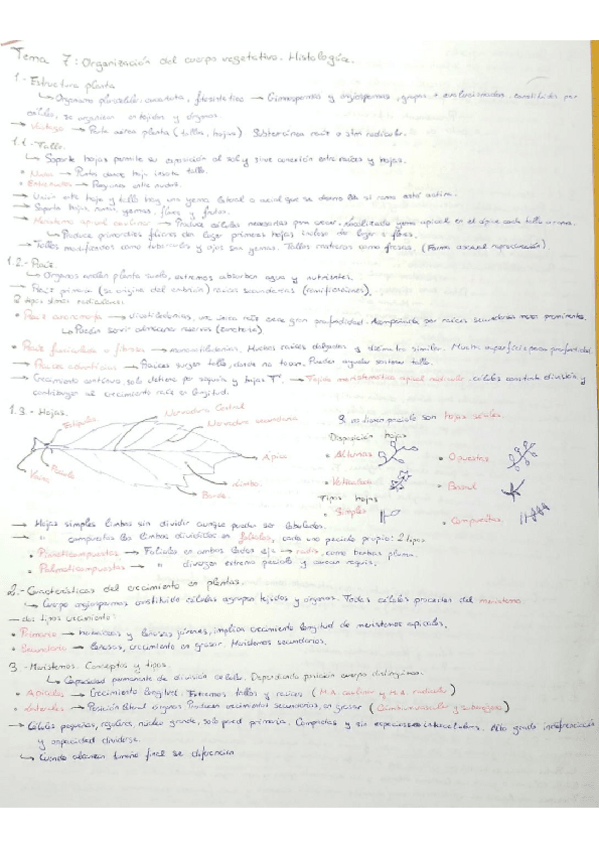 Tema 7: Organización del cuerpo vegetativo. Histología.
1.- Estructura planta
↳ Organismo pluricelular, eucariota, fotosintético → Gimnospermas y angiospermas, grupos + evolucionados. Constituidos por
células, se organizan en tejidos y órganos.
→ Vástago → Parte aérea planta (tallos, hojas) Subterránea raíz o sist. radicular.
1.1.- Tallo.
↳ Soporte hojas permite su exposición al sol y sirve conexión entre raíces y hojas.
• Nudos → Punto donde hoja inserta tallo.
• Entrenudos → Porciones entre nudos.
→ Unión entre hoja y tallo hay una yema lateral o axial que se desarrolla si rama está activa.
→ Soporta hojas, ramas, yemas, flores y frutos.
→ Meristemo apical caulinar → Produce células necesarias para crecer. Localizado yema apical en el ápice cada tallo o rama.
↳ Produce primordios foliares dan lugar primeras hojas incluso da lugar a flores.
→ Tallos como tubérculos y ojos son yemas. Tallos rastreros como fresas. (Forma asexual reproducción)
1.2.- Raíz.
↳ Órganos anclan planta suelo, extremos absorben agua y nutrientes.
→ Raíz primaria (se origina del embrión) raíces secundarias (ramificaciones).
2 tipos sistemas radiculares:
• Raíz axonomorfa → dicotiledóneas, una única raíz crece gran profundidad. Acompañada por raíces secundarias menos prominentes.
↳ Pueden servir almacenar reservas (zanahoria)
• Raíz fasciculada o fibrosa → monocotiledóneas. Muchas raíces delgadas y diámetro similar. Mucha superficie poca profundidad.
→ Raíces adventicias → Raíces surgen tallo, donde no tocan. Pueden ayudar sostener tallo.
→ Crecimiento continuo, solo detiene por sequía y bajas Tª. → Tejido meristemático apical radicular. células constante división y
contribuyen al crecimiento raíz en longitud.
1.3.- Hojas.
Estípulas
Nervadura Central
Nervadura secundaria
Ápice
Limbo
Borde.
Pecíolo
Vaina
Si no tienen pecíolo son hojas sésiles.
Disposición hojas
• Alternas
• Opuestas
• Verticiladas
• Basal
Tipos hojas
• Simples
• Compuestas
→ Hojas simples limbos sin dividir aunque pueden ser lobulados.
→ " compuestas los limbos divididos en folíolos, cada uno pecíolo propio: 2 tipos
• Pinnaticompuestas → Folíolos en ambos lados eje → raquis, como barbas pluma.
• Palmaticompuestas → " divergen extremo pecíolo y carecen raquis.
2.- Características del crecimiento en plantas.
↳ Cuerpo angiospermas constituido células agrupan tejidos y órganos. Todas células proceden del meristemo
→ dos tipos crecimiento:
• Primario → herbáceas y leñosas jóvenes, implica crecimiento longitud de meristemos apicales.
• Secundario → leñosas, crecimiento en grosor. Meristemos secundarios.
3.- Meristemos. Conceptos y tipos.
↳ Capacidad permanente de división celular. Dependiendo posición cuerpo distinguimos:
• Apicales → Crecimiento longitud. Extremos tallos y raíces (M.A. caulinar y M.A. radicular)
• Laterales → Posición lateral órganos. Producen crecimientos secundarios, en grosor (Cámbium vascular y suberógeno)
→ Células pequeñas, regulares, núcleo grande, solo pared primaria. Compactas y sin espacios intercelulares. Alto grado indiferenciación
y capacidad dividirse.
↳ Cuando alcanzan tamaño final se diferencian